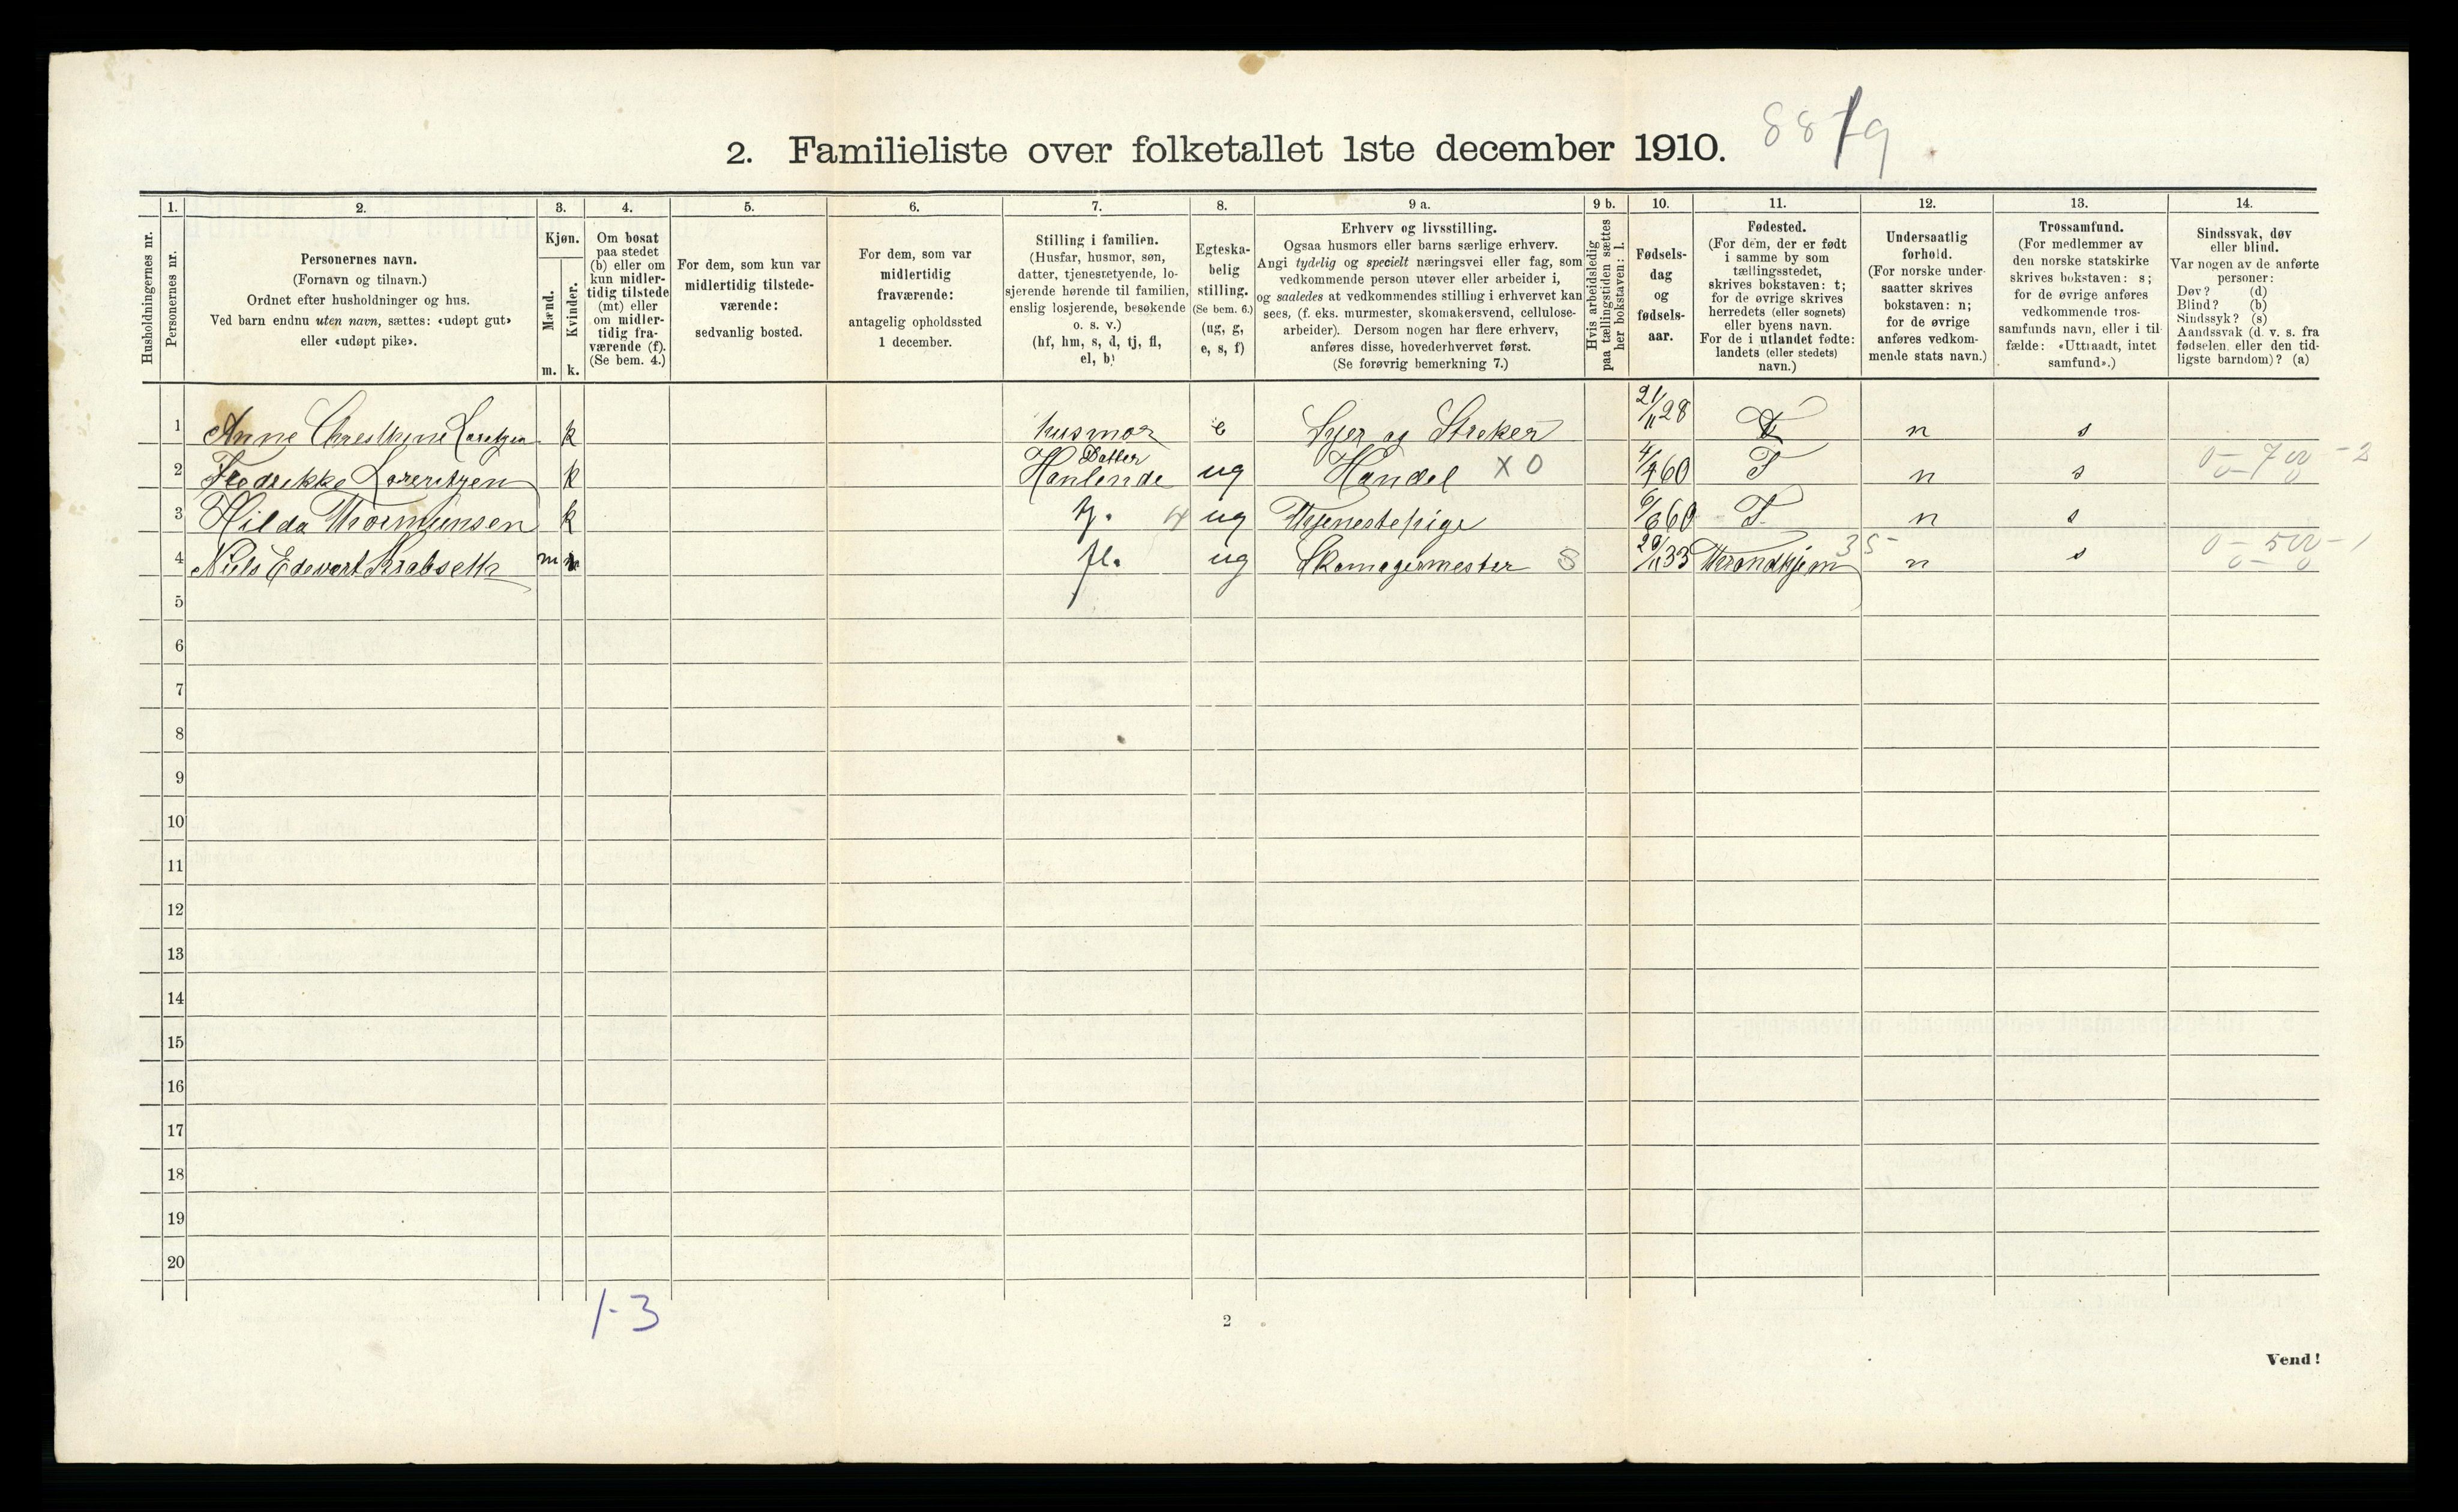 2. Familieliste over folketallet 1ste december 1910. 88 79
1. 2. 3. 4. 5. 6. 7. 8. 9 a. 9 b. 10. 11. 12. 13. 14.
Husholdningernes nr.
Personernes nr.
Personernes navn.
(Fornavn og tilnavn.)
Ordnet efter husholdninger og hus.
Ved barn endnu uten navn, sættes: «udøpt gut»
eller «udøpt pike».
Kjøn.
Mænd.
Kvinder.
m. k.
Om bosat
paa stedet
(b) eller om
kun midler-
tidig tilstede
(mt) eller
om midler-
tidig fra-
værende (f).
(Se bem. 4.)
For dem, som kun var
midlertidig tilstede-
værende:
sedvanlig bosted.
For dem, som var
midlertidig
fraværende:
antagelig opholdssted
1 december.
Stilling i familien.
(Husfar, husmor, søn,
datter, tjenestetyende, lo-
sjerende hørende til familien,
enslig losjerende, besøkende
o. s. v.)
(hf, hm, s, d, tj, fl,
el, b)
Egteska-
belig
stilling.
(Se bem. 6.)
(ug, g,
e, s, f)
Erhverv og livsstilling.
Ogsaa husmors eller barns særlige erhverv.
Angi tydelig og specielt næringsvei eller fag, som
vedkommende person utøver eller arbeider i,
og saaledes at vedkommendes stilling i erhvervet kan
sees, (f. eks. murmester, skomakersvend, cellulose-
arbeider). Dersom nogen har flere erhverv,
anføres disse, hovederhvervet først.
(Se forøvrig bemerkning 7.)
Hvis arbeidsledig
paa tællingstiden sættes
her bokstaven: l.
Fødsels-
dag
og
fødsels-
aar.
Fødested.
(For dem, der er født
i samme by som
tællingsstedet,
skrives bokstaven: t;
for de øvrige skrives
herredets (eller sognets)
eller byens navn.
For de i utlandet fødte:
landets (eller stedets)
navn.)
Undersaatlig
forhold.
(For norske under-
saatter skrives
bokstaven: n;
for de øvrige
anføres vedkom-
mende stats navn.)
Trossamfund.
(For medlemmer av
den norske statskirke
skrives bokstaven: s;
for de øvrige anføres
vedkommende tros-
samfunds navn, eller i til-
fælde: «Uttraadt, intet
samfund».)
Sindssvak, døv
eller blind.
Var nogen av de anførte
personer:
Døv? (d)
Blind? (b)
Sindssyk? (s)
Aandssvak (d. v. s. fra
fødselen eller den tid-
ligste barndom)? (a)
1 Anne Chresthine Loretzen k husmor e Syer og Streker 21/11 28 T n s
2 Fredrikke Lorentzen k Datter Hanlende ug Handel X 0 4/4 60 T n s 0 – 700 – 2
3 Hilda Thormunsen k tj. ug Thjenestepige 6/6 60 T n s
4 Niels Edevart Krabseth m fl. ug Skomagermester 8 29/11 33 Therondhjem 35 n s 0 – 500 – 1
5
6
7
8
9
10
11
12
13
14
15
16
17
18
19
20
1-3
2
Vend!